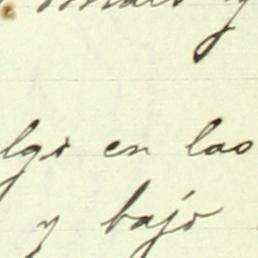 y
lgo en las
y bajo